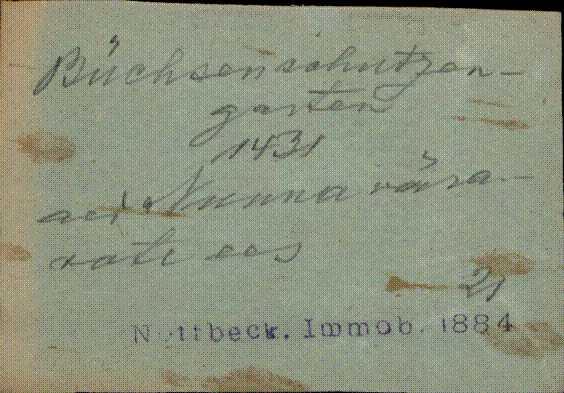 Büchsenschutzen-
garten
1431
aed Nunna vära-
vate ees
21
Nottbeck. Immob. 1884